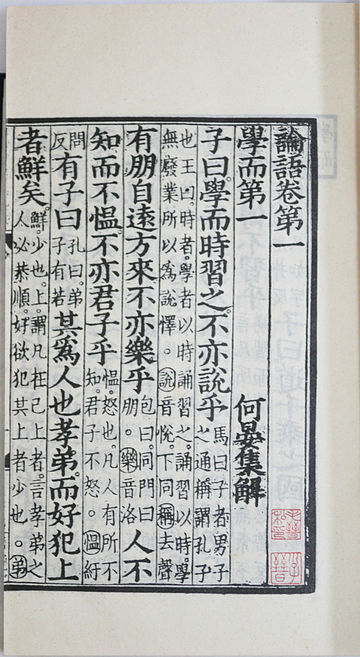 論語卷第一
學而第一 何晏集解
子曰。學而時習之。不亦說乎 馬曰子者男子
之通稱謂孔子
也王曰。時者。學者以時誦習之。誦習以時。學
無廢業所以爲說懌。說音悅。下同稱去聲
有朋自遠方來不亦樂乎 包曰。同門曰
朋。樂音洛 人不
知而不慍。不亦君子乎 慍。怒也。凡人有所不
知。君子不怒。慍紆
問
反 有子曰 孔曰。弟
子有若 其爲人也孝弟。而好犯上
者鮮矣。鮮。少也。上。謂凡在己上者。言孝弟之
人必恭順。好欲犯其上者少也。弟